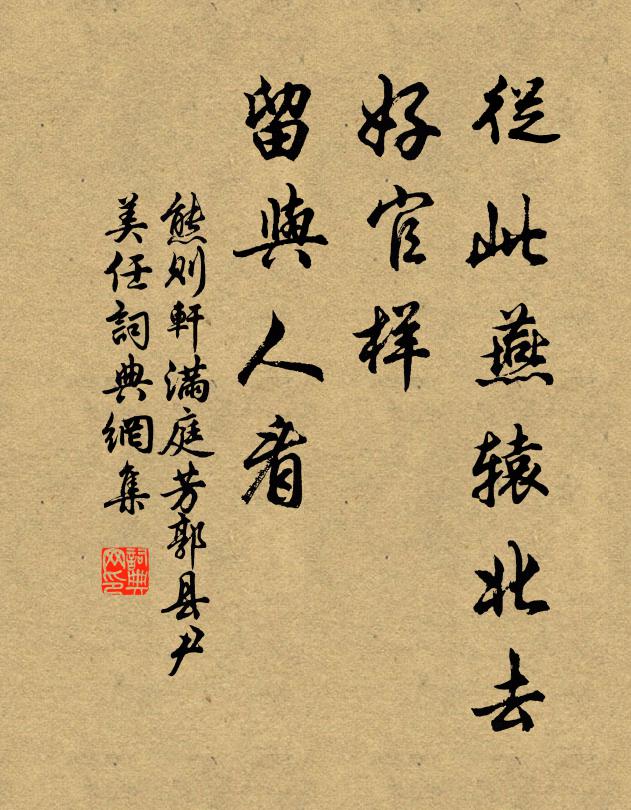 從此燕辕北去
好官样
留與人看
熊则軒滿庭芳郭县尹
美任詞典網集
詞典网印